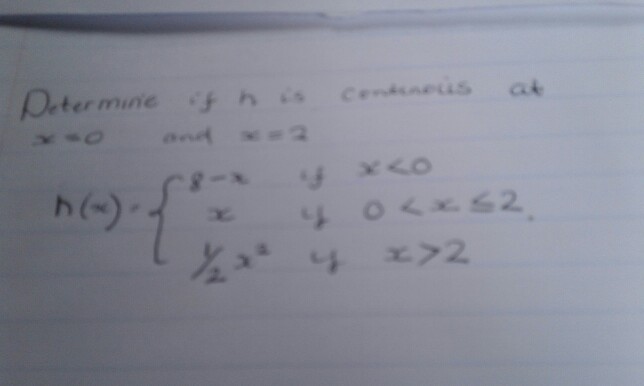 Determine if h is continous at
x=0 and x=2
h(x) = { 8-x if x<0
x if 0<x≤2.
1/2 x² if x>2